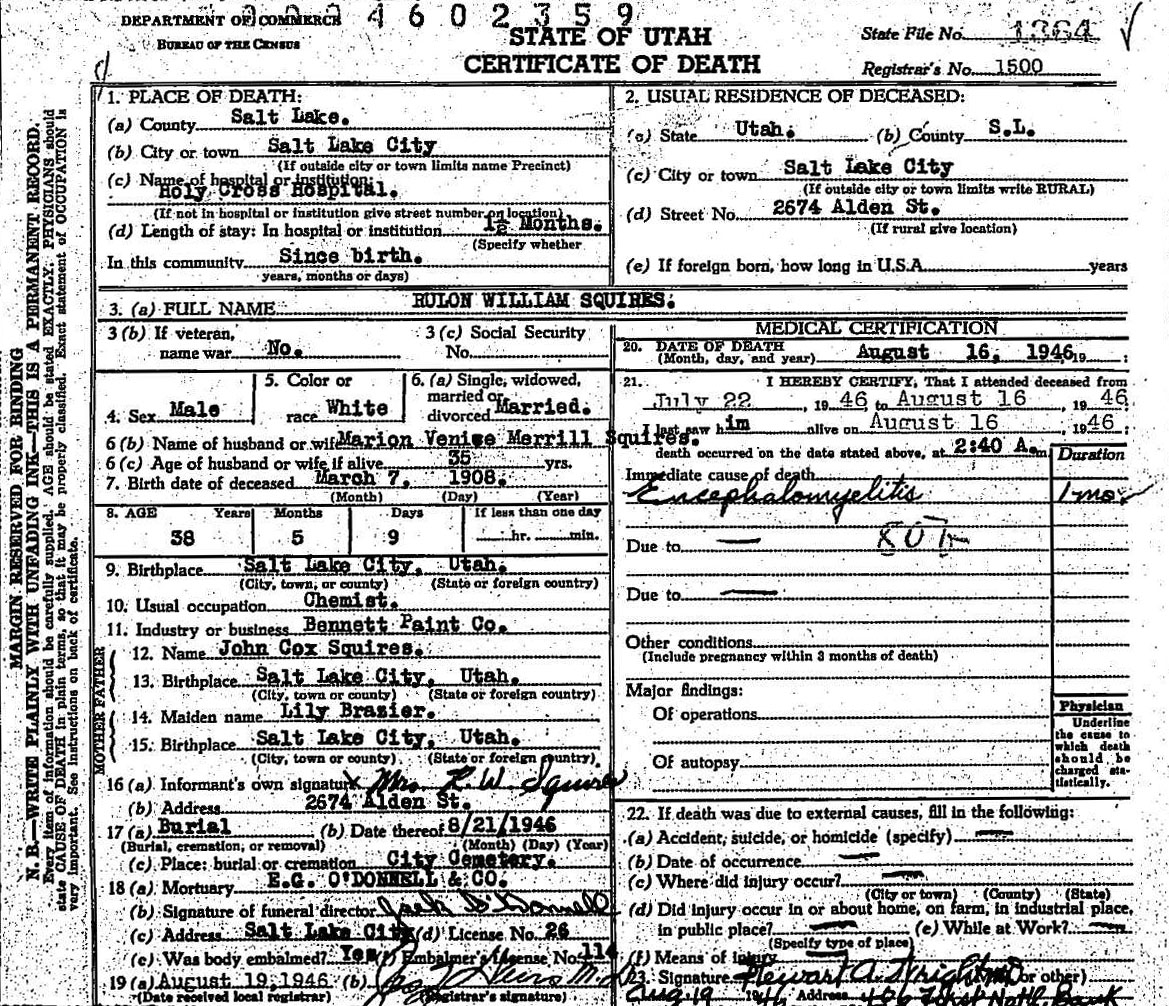 0 0 0 4 6 0 2 3 5 9
DEPARTMENT OF COMMERCE
BUREAU OF THE CENSUS
STATE OF UTAH
CERTIFICATE OF DEATH
State File No. 1364
Registrar's No. 1500
MARGIN RESERVED FOR BINDING
N. B.—WRITE PLAINLY WITH UNFADING INK—THIS IS A PERMANENT RECORD.
Every item of information should be carefully supplied. AGE should be stated EXACTLY. PHYSICIANS should
state CAUSE OF DEATH in plain terms, so that it may be properly classified. Exact statement of OCCUPATION is
very important. See instructions on back of certificate.
1. PLACE OF DEATH:
(a) County Salt Lake.
(b) City or town Salt Lake City
(If outside city or town limits name Precinct)
(c) Name of hospital or institution:
Holy Cross Hospital.
(If not in hospital or institution give street number or location)
(d) Length of stay: In hospital or institution 1½ Months.
(Specify whether
In this community Since birth.
years, months or days)
2. USUAL RESIDENCE OF DECEASED:
(a) State Utah. (b) County S.L.
(c) City or town Salt Lake City
(If outside city or town limits write RURAL)
(d) Street No. 2674 Alden St.
(If rural give location)
(e) If foreign born, how long in U.S.A. years
3. (a) FULL NAME RULON WILLIAM SQUIRES.
3 (b) If veteran,
name war No.
3 (c) Social Security
No.
4. Sex Male
5. Color or
race White
6. (a) Single, widowed,
married or
divorced Married.
6 (b) Name of husband or wife Marion Venise Merrill Squires.
6 (c) Age of husband or wife if alive 35 yrs.
7. Birth date of deceased March 7, 1908.
(Month) (Day) (Year)
8. AGE Years Months Days If less than one day
38 5 9 hr. min.
9. Birthplace Salt Lake City, Utah.
(City, town, or county) (State or foreign country)
10. Usual occupation Chemist.
11. Industry or business Bennett Paint Co.
FATHER
12. Name John Cox Squires.
13. Birthplace Salt Lake City, Utah.
(City, town or county) (State or foreign country)
MOTHER
14. Maiden name Lily Brazier.
15. Birthplace Salt Lake City, Utah.
(City, town or county) (State or foreign country)
16 (a) Informant's own signature x Mrs. R. W. Squires
(b) Address 2674 Alden St.
17 (a) Burial (b) Date thereof 8/21/1946
(Burial, cremation, or removal) (Month) (Day) (Year)
(c) Place: burial or cremation City Cemetery.
18 (a) Mortuary E.G. O'DONNELL & CO.
(b) Signature of funeral director Jack O'Donnell
(c) Address Salt Lake City (d) License No. 26
(e) Was body embalmed? Yes (f) Embalmer's License No. 114
19 (a) August 19, 1946 (b)
(Date received local registrar) (Registrar's signature)
MEDICAL CERTIFICATION
20. DATE OF DEATH
(Month, day, and year) August 16, 1946 19 :
21. I HEREBY CERTIFY, That I attended deceased from
July 22, 19 46 to August 16, 19 46
I last saw him alive on August 16, 19 46
death occurred on the date stated above, at 2:40 A. m
Duration
Immediate cause of death
Encephalomyelitis 1 mo.
Due to —
Due to —
Other conditions
(Include pregnancy within 3 months of death)
Major findings:
Of operations
Of autopsy
Physician
Underline
the cause to
which death
should be
charged sta-
tistically.
22. If death was due to external causes, fill in the following:
(a) Accident, suicide, or homicide (specify) —
(b) Date of occurrence —
(c) Where did injury occur? —
(City or town) (County) (State)
(d) Did injury occur in or about home, on farm, in industrial place,
in public place? — (e) While at Work? —
(Specify type of place)
(f) Means of injury
23. Signature Stewart A. Wright MD or other)
Aug 19 1946 Address